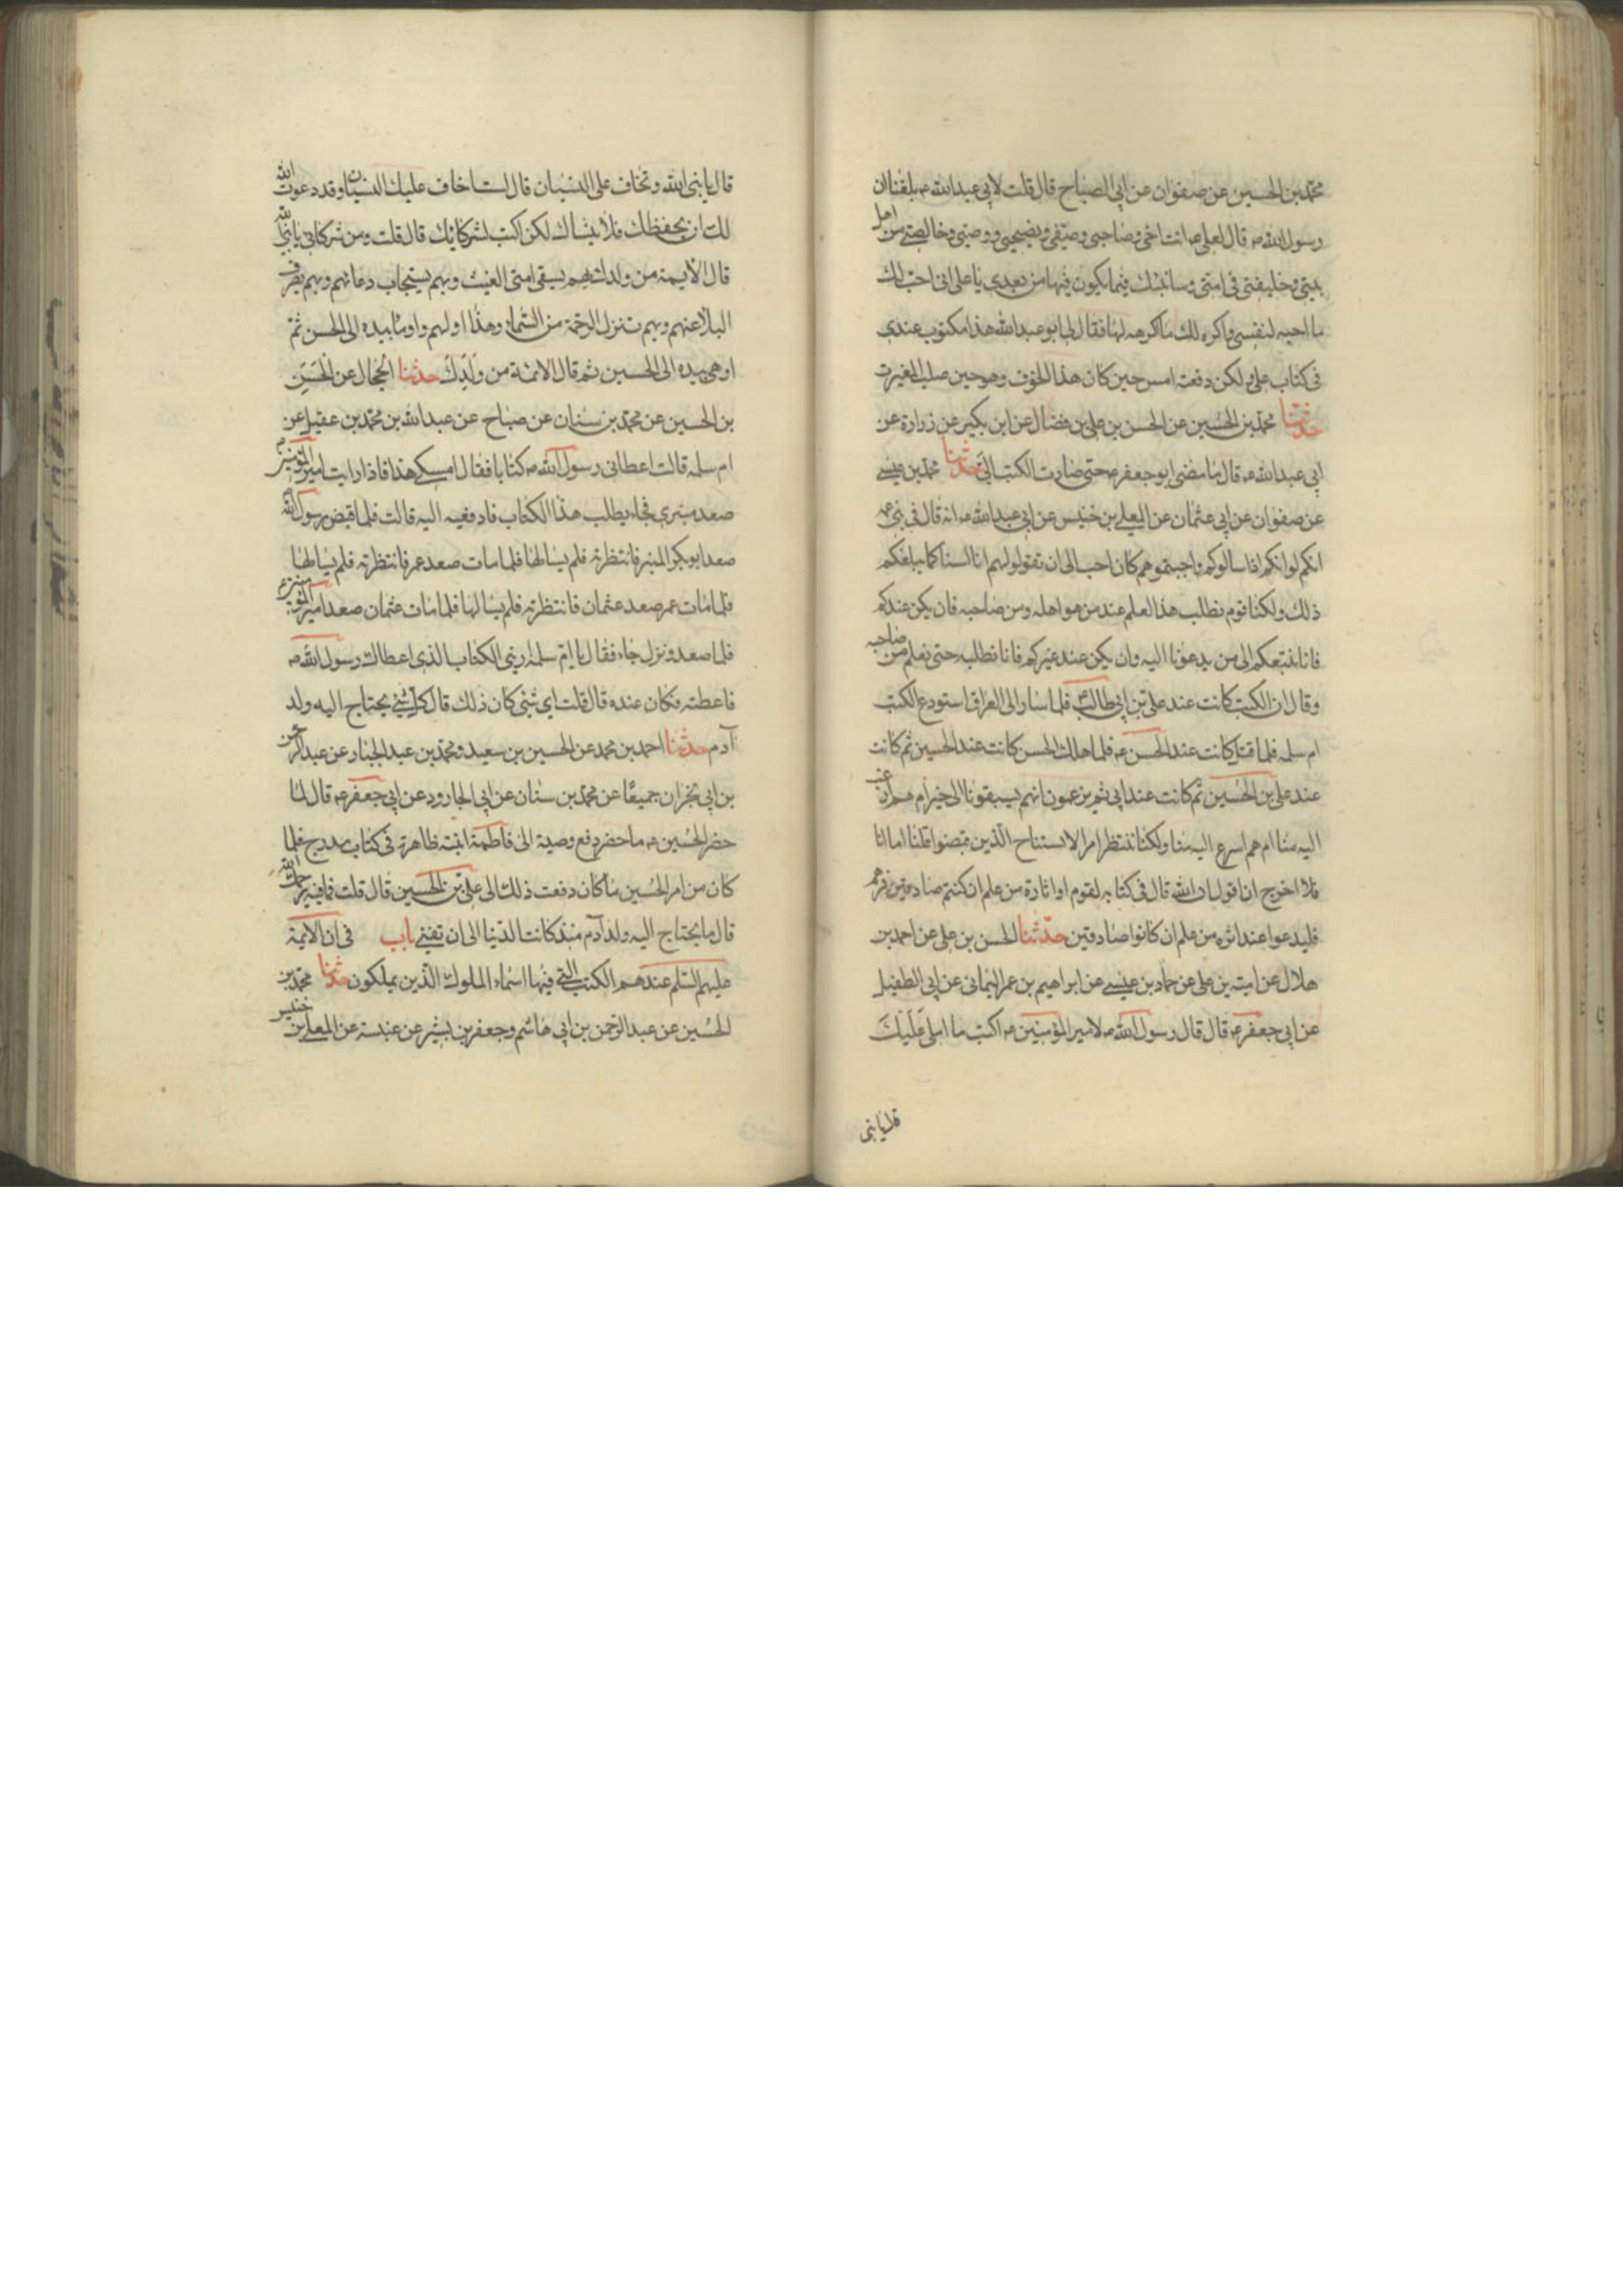 محمد بن الحسين عن صفوان عن ابي الصباح قال قلت لابي عبدالله ع بلغنا ان
رسول الله ص قال لعلي ع انت اخي وصاحبي وصفيي ووصيي وخالصتي من اهل
بيتي وخليفتي في امتي وسانبئك فيما يكون فيها من بعدي يا علي اني احب لك
ما احبه لنفسي واكره لك ما اكرهه لها فقال لي ابو عبدالله هذا مكتوب عندي
في كتاب علي ولكن دفعته امس حين كان هذا الخوف وهو حين صلب المغيرة
حدثنا محمد بن الحسين عن الحسن بن علي بن فضال عن ابن بكير عن زرارة عن
ابي عبدالله ع قال ما مضى ابو جعفر ع حتى صارت الكتب الي حدثنا محمد بن عيسى
عن صفوان عن ابي عثمان عن المعلى بن خنيس عن ابي عبدالله ع انه قال في بني عمه
انكم لو انكم اذا سالوكم واجبتموهم كان احب الي ان تقولوا لهم انا لسنا كما يبلغكم
ذلك ولكنا قوم نطلب هذا العلم عند من هو اهله ومن صاحبه فان يكن عندكم
فانا نتبعكم الى من يدعونا اليه وان يكن عند غيركم فانا نطلبه حتى نعلم من صاحبه
وقال ان الكتب كانت عند علي بن ابي طالب ع فلما سار الى العراق استودع الكتب
ام سلمه فلما قتل كانت عند الحسن ع فلما هلك الحسن كانت عند الحسين ثم كانت
عند علي بن الحسين ثم كانت عند ابي ثم يزعمون انهم يسبقونا الى خير ام هم ارغب
اليه منا ام هم اسرع اليه منا ولكنا ننتظر امر الاستناح الذين قبضوا قلنا اما انا
فلا اخرج ان اقول ان الله قال في كتابه لقوم او اثارة من علم ان كنتم صادقين فمرهم
فليدعوا عند اثره من علم ان كانوا صادقين حدثنا الحسن بن علي عن احمد بن
هلال عن امية بن علي عن حماد بن عيسى عن ابراهيم بن عمر اليماني عن ابي الطفيل
عن ابي جعفر ع قال قال رسول الله ص لامير المؤمنين ع اكتب ما املي عليك
قال يا نبي
قال يا نبي الله وتخاف علي النسيان قال لست اخاف عليك النسيان وقد دعوت الله
لك ان يحفظك فلا ينساك لكن اكتب لشركائك قال قلت ومن شركائي يا نبي الله
قال الايمة من ولدك بهم يسقى امتي الغيث وبهم يستجاب دعائهم وبهم يصرف
البلاء عنهم وبهم تنزل الرحمة من السماء وهذا اولهم واومأ بيده الى الحسن ثم
اوهى بيده الى الحسين ثم قال الائمة من ولدك حدثنا الحجال عن الحسن
بن الحسين عن محمد بن سنان عن صباح عن عبدالله بن محمد بن عقيل عن
ام سلمه قالت اعطاني رسول الله ص كتابا فقال امسكي هذا فاذا رايت امير المؤمنين
صعد منبري فجاء يطلب هذا الكتاب فادفعيه اليه قالت فلما قبض رسول الله
صعد ابو بكر المنبر فانتظرته فلم يسالها فلما مات صعد عمر فانتظرته فلم يسالها
فلما مات عمر صعد عثمان فانتظرته فلم يسالها فلما مات عثمان صعد امير المؤمنين ع
فلما صعد ونزل جاء فقال يا ام سلمه اريني الكتاب الذي اعطاك رسول الله ص
فاعطته فكان عنده قال قلت اي شئ كان ذلك قال كل شئ يحتاج اليه ولد
آدم حدثنا احمد بن محمد عن الحسين بن سعيد ومحمد بن عبد الجبار عن عبد الرحمن
بن ابي نجران جميعا عن محمد بن سنان عن ابي الجارود عن ابي جعفر ع قال لما
حضر الحسين ع ما حضر دفع وصية الى فاطمة ابنته ظاهرة في كتاب مدرج فلما
كان من امر الحسين ما كان دفعت ذلك الى علي بن الحسين قال قلت فما فيه يرحمك الله
قال ما يحتاج اليه ولد آدم منذ كانت الدنيا الى ان تفنى باب في ان الايمة
عليهم السلم عندهم الكتب التي فيها اسماء الملوك الذين يملكون حدثنا محمد بن
الحسين عن عبد الرحمن بن ابي هاشم وجعفر بن بشير عن عنبسه عن المعلى بن خنيس